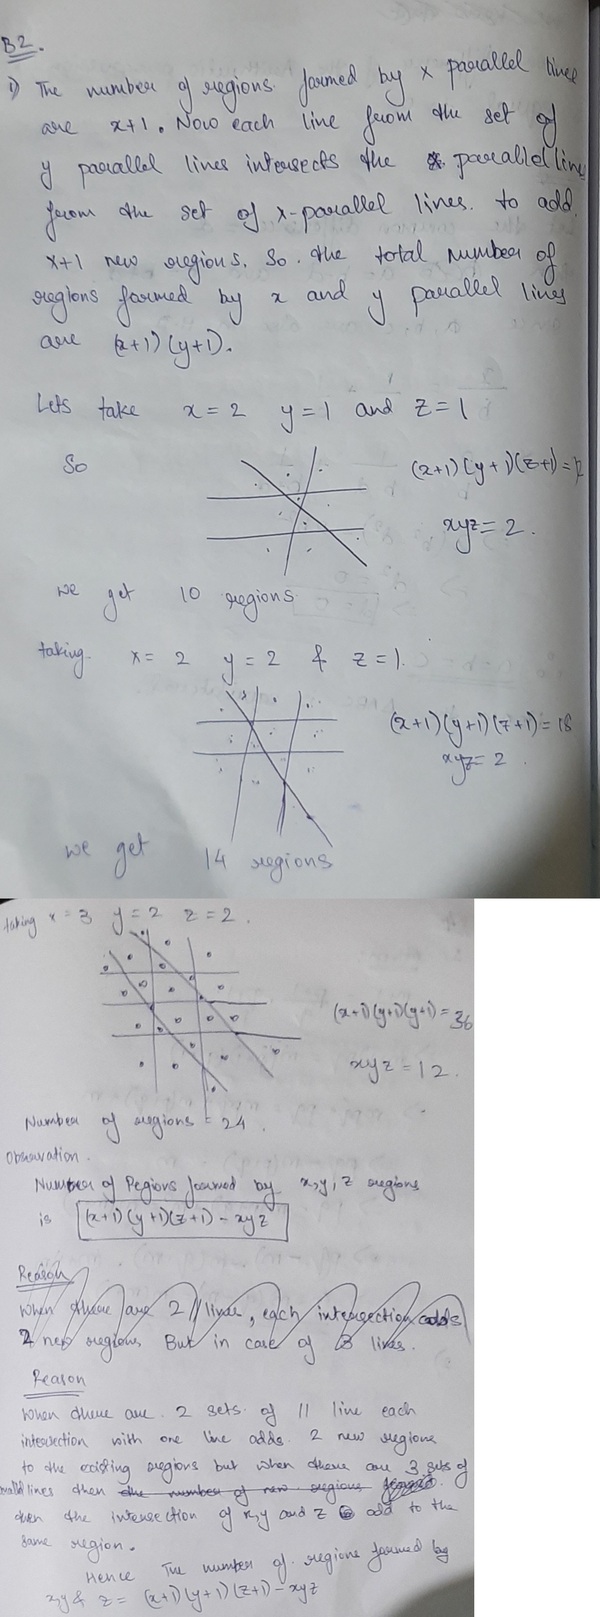 B2.
i) The number of regions formed by x parallel lines
are x+1. Now each line from the set of
y parallel lines intersects the parallel line
from the set of x-parallel lines. to add
x+1 new regions. So the total number of
regions formed by x and y parallel lines
are (x+1)(y+1).
Lets take x=2 y=1 and z=1
So
(x+1)(y+1)(z+1)=12
xyz=2.
we get 10 regions
taking x=2 y=2 & z=1.
(x+1)(y+1)(z+1)=18
xyz=2.
we get 14 regions
taking x=3 y=2 z=2.
(x+1)(y+1)(y+1)=36
xyz=12.
Number of regions=24.
Observation.
Number of Regions formed by x,y,z regions
is (x+1)(y+1)(z+1)-xyz
Reason
When there are 2 // lines, each intersection adds
2 new regions But in case of 3 lines.
Reason
When there are 2 sets of // line each
intersection with one line adds 2 new regions
to the existing regions but when there are 3 sets of
lines then the number of new regions
then the intersection of x,y and z add to the
same region.
Hence The number of regions formed by
x,y & z = (x+1)(y+1)(z+1)-xyz